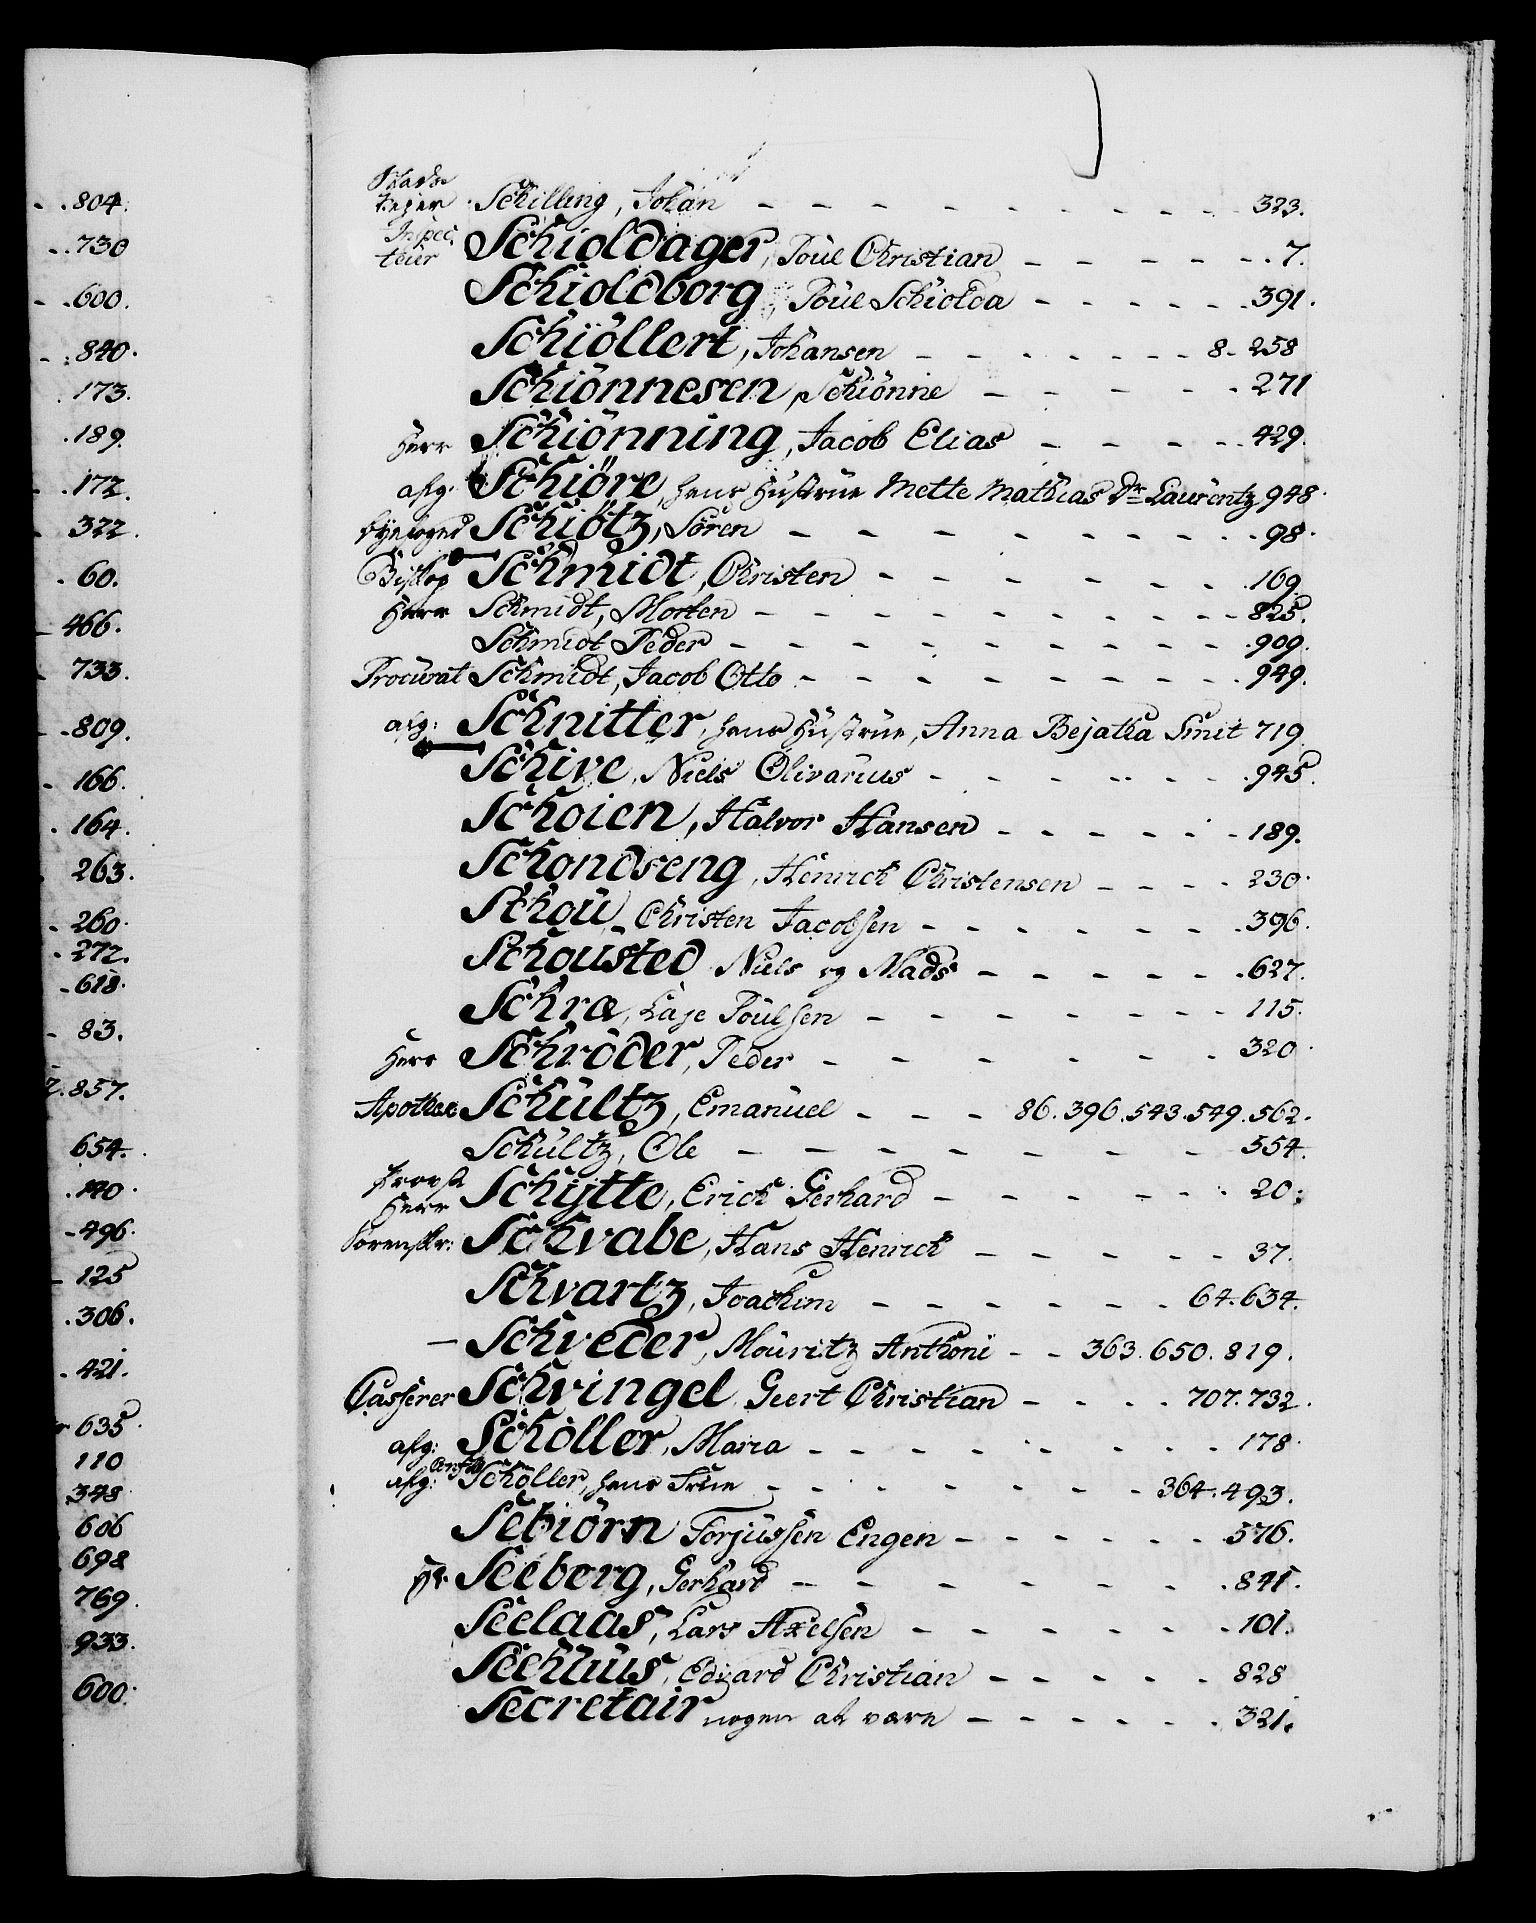 .804.
.730
.600.
.840.
.173.
.189.
.172.
322.
.60.
466.
733.
.809.
166.
164.
263.
260.
.272.
.618.
83.
.857.
654.
.140.
.496.
125
.306.
.421.
635
110
348
606
698
769.
933.
600.
Schilling, Johan - - - 323.
Inspec
teur Schioldager, Poul Christian - - - 7.
Schioldborg, Poul Schiolda - - - 391.
Schiöllert, Johansen - - - 8. 258
Schiönnesen, Schiönne - - - 271
Herr Schiönning, Jacob Elias - - - 429.
afg. Schiöre, hans Hustrue Mette Mathias Dr. Laurentz 948.
Byefoged Schiötz, Sören - - - 98.
Biskop Schmidt, Christen - - - 169
Herr Schmidt, Morten - - - 825.
Schmidt Peder - - - 909.
Procurat Schmidt, Jacob Otto - - - 949.
afg: Schnitter, hans Hustrue, Anna Bejatha Smit 719
Schive, Niels Olivarius - - - 945.
Schoien, Halvor Hansen - - - 189.
Schondseng, Henrich Christensen - - - 230.
Schou Christen Jacobsen - - - 396.
Schousted Niels og Mads - - - 627.
Schra, Laje Poulsen - - - 115.
Herr Schröder, Peder - - - 320.
Apothek Schultz, Emanuel - - - 86. 396. 543. 549. 562.
Schultz, Ole - - - 554.
Provst
Herr Schytte, Erich Gerhard - - - 20.
Sorenskr: Schvabe, Hans Henrich - - - 37.
Schvartz, Joachim - - - 64. 634.
— Schveder, Mouritz Anthoni - - 363. 650. 819.
Casserer Schvingel Geert Christian - - - 707. 732.
afg: Schöller, Maria - - - 178.
afg: Schöller, hans Frue - - - 364. 493.
Sebiörn Torjussen Engen - - - 576.
Hr. Seeberg, Gerhard - - - 841.
Seelaas, Lars Axelsen - - - 101.
Seehuus, Edvard Christian - - - 828
Secretair nogen at være - - - 321.